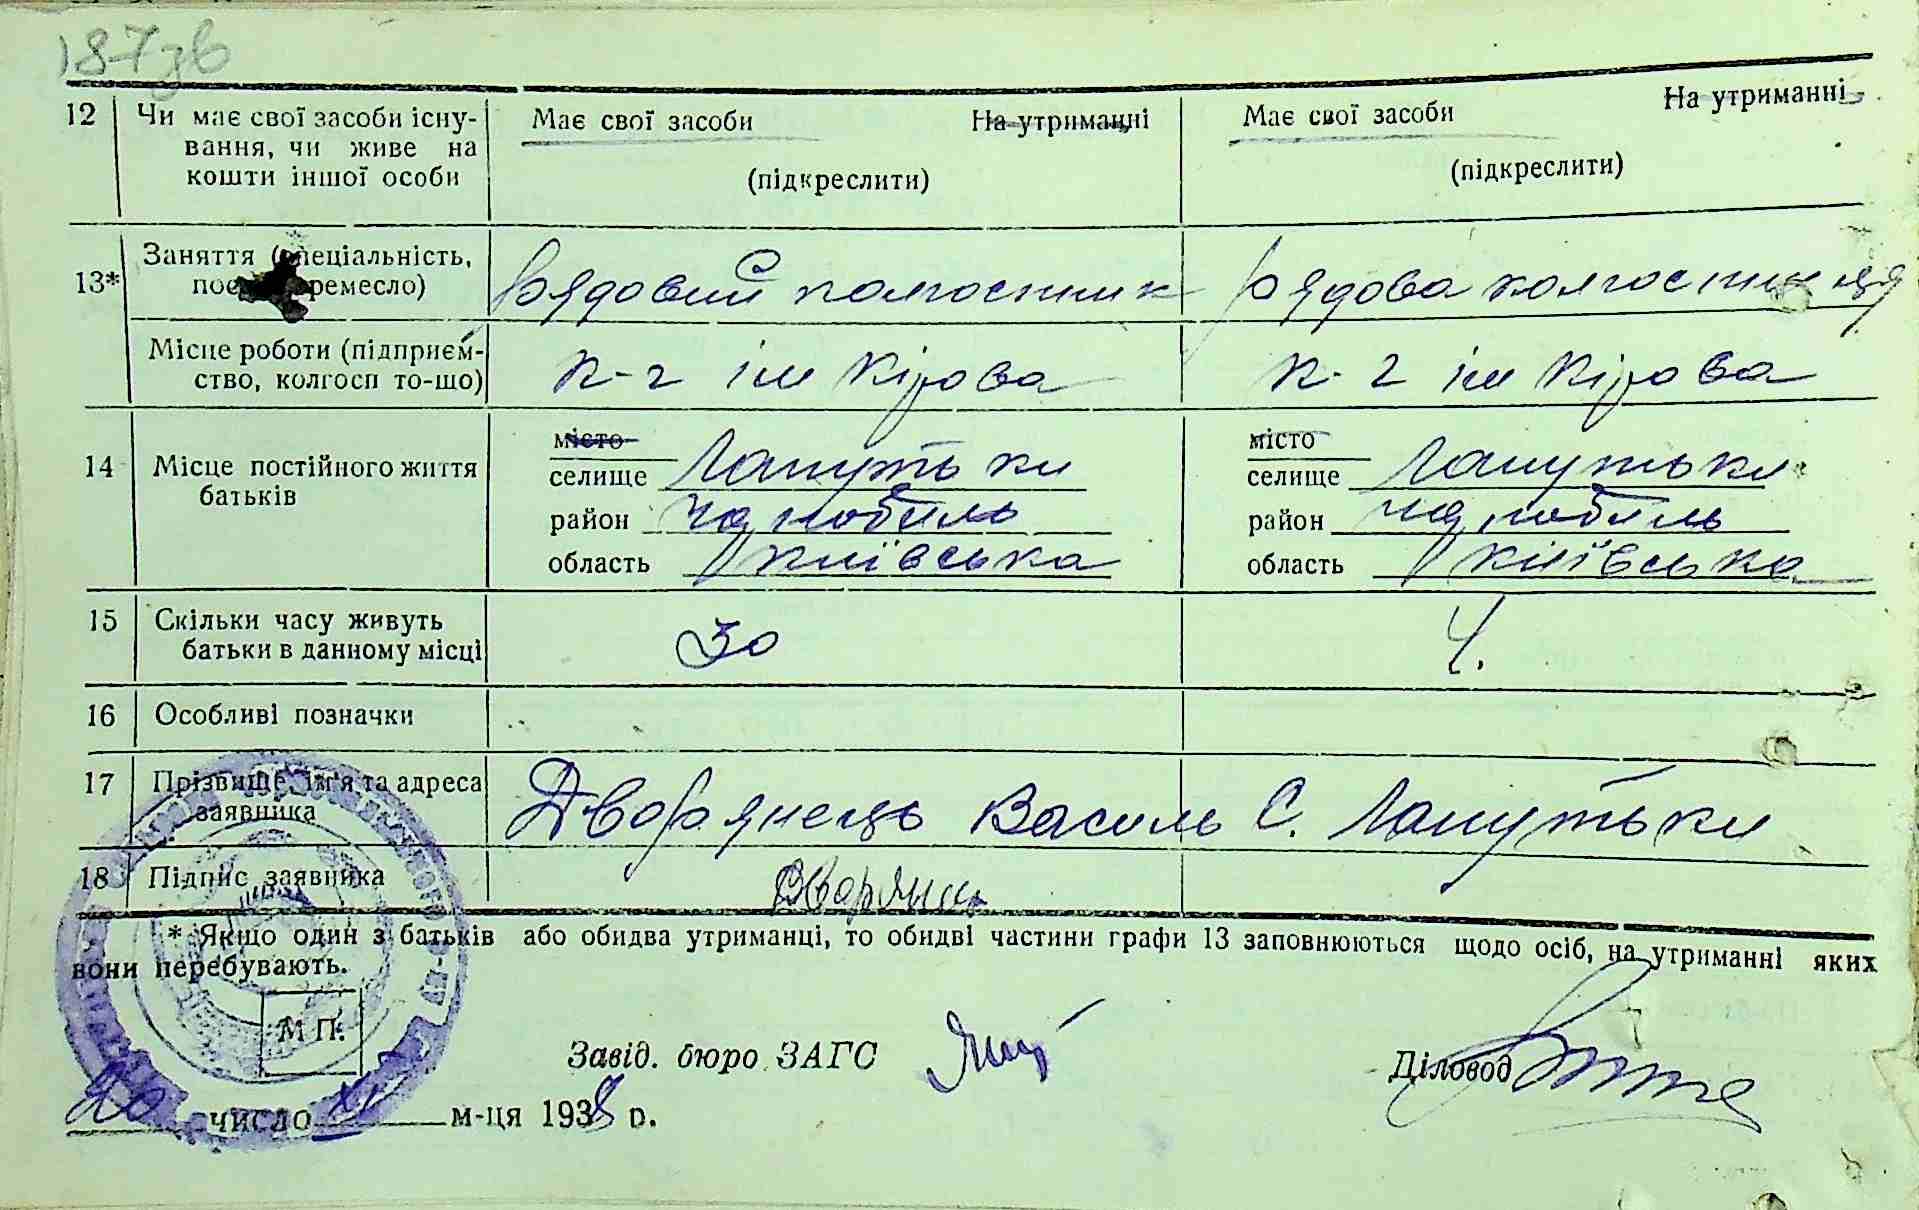 187зв
12 Чи має свої засоби існу- Має свої засоби На утриманні Має свої засоби На утриманні
вання, чи живе на
кошти іншої особи (підкреслити) (підкреслити)
13* Заняття (спеціальність, рядовий колгоспник рядова колгоспниця
ремесло)
Місце роботи (підприєм- к-г ім Кірова к-г ім Кірова
ство, колгосп то-що)
14 Місце постійного життя місто місто
батьків селище Лапутьки селище Лапутьки
район Чорнобиль район Чорнобиль
область Київська область Київська
15 Скільки часу живуть 30 4.
батьки в данному місці
16 Особливі позначки
17 Прізвище, ім'я та адреса Дворянець Василь С. Лапутьки
заявника
18 Підпис заявника
* Якщо один з батьків або обидва утриманці, то обидві частини графи 13 заповнюються щодо осіб, на утриманні яких
вони перебувають.
М П.
Завід. бюро ЗАГС Діловод
число м-ця 1938 р.